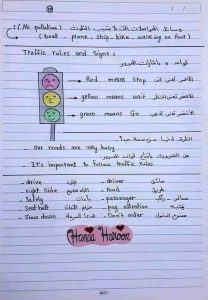 وسائل المواصلات التى لا تسبب التلوث (No pollution) :
( boat - plane - ship - bike - walking on foot )
Traffic rules and Signs :
قواعد و اشارات المرور
Red means Stop الأحمر تعنى قف
yellow means wait الأصفر تعنى انتظر
green means Go الأخضر تعنى
الطرق لدينا مزدحمة جدا
_ Our roads are very busy
من الضرورى اتباع قواعد المرور
_ It's important to follow traffic rules
- drive يقود - driver سائق
- right side - road طريق
- Safety أمان - passenger راكب
- Seat belt حزام الأمان - pay attention
- Slow down - Don't enter ممنوع الدخول
Hanaa Haroon